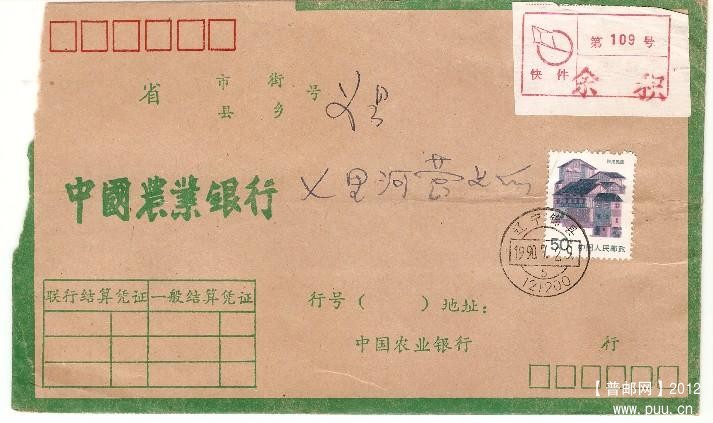 第 109 号
快件
余 积
省 市 街 号
县 乡
义县
义里河营
中國農業银行
陕北民居
50
中国人民邮政
辽宁
1990.7.29.
5
121200
联行结算凭证 一般结算凭证
行号（ ）地址：
中国农业银行 行
【普邮网】2012
www.puu.cn